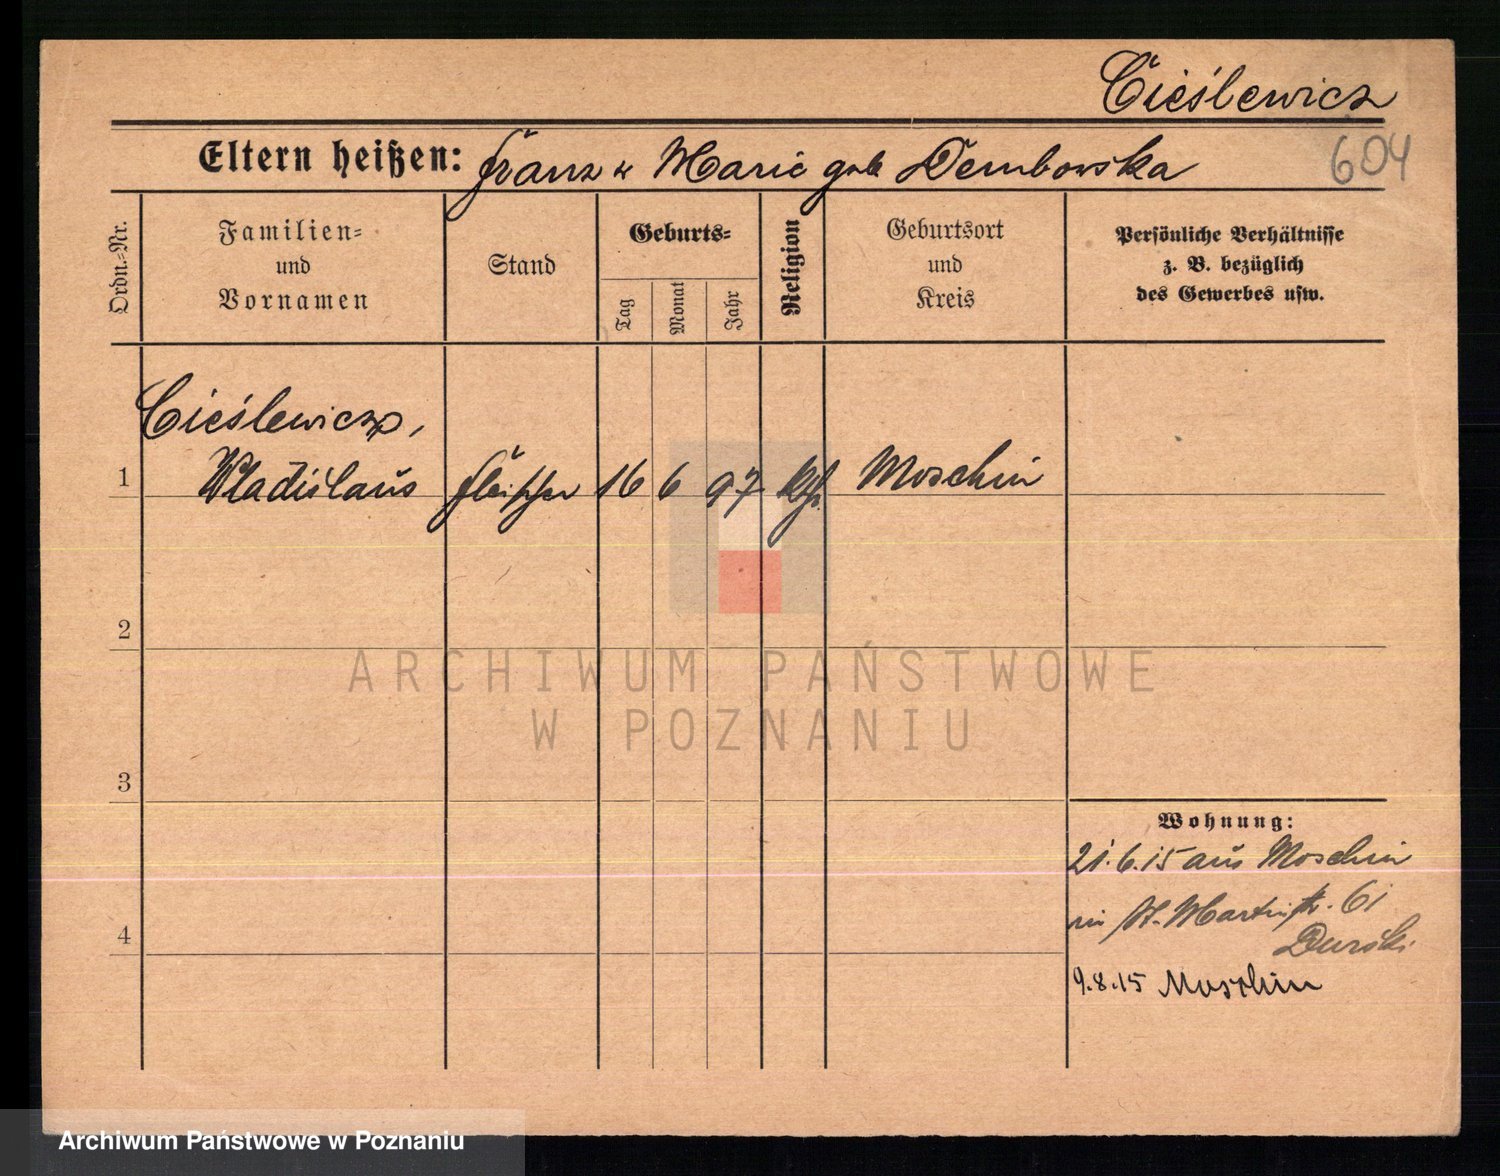 Cieślewicz
604
Eltern heißen: Franz u Marie geb Dembowska
Ordn.=Nr.
Familien=
und
Vornamen
Stand
Geburts=
Tag
Monat
Jahr
Religion
Geburtsort
und
Kreis
Persönliche Verhältnisse
z. B. bezüglich
des Gewerbes usw.
Cieślewicz,
1 Wladislaus Fleischer 16 6 97 kth. Moschin
2
3
4
Wohnung:
21.6.15 aus Moschin
in St. Martinstr. 61
Durski
9.8.15 Moschin
ARCHIWUM PAŃSTWOWE
W POZNANIU
Archiwum Państwowe w Poznaniu